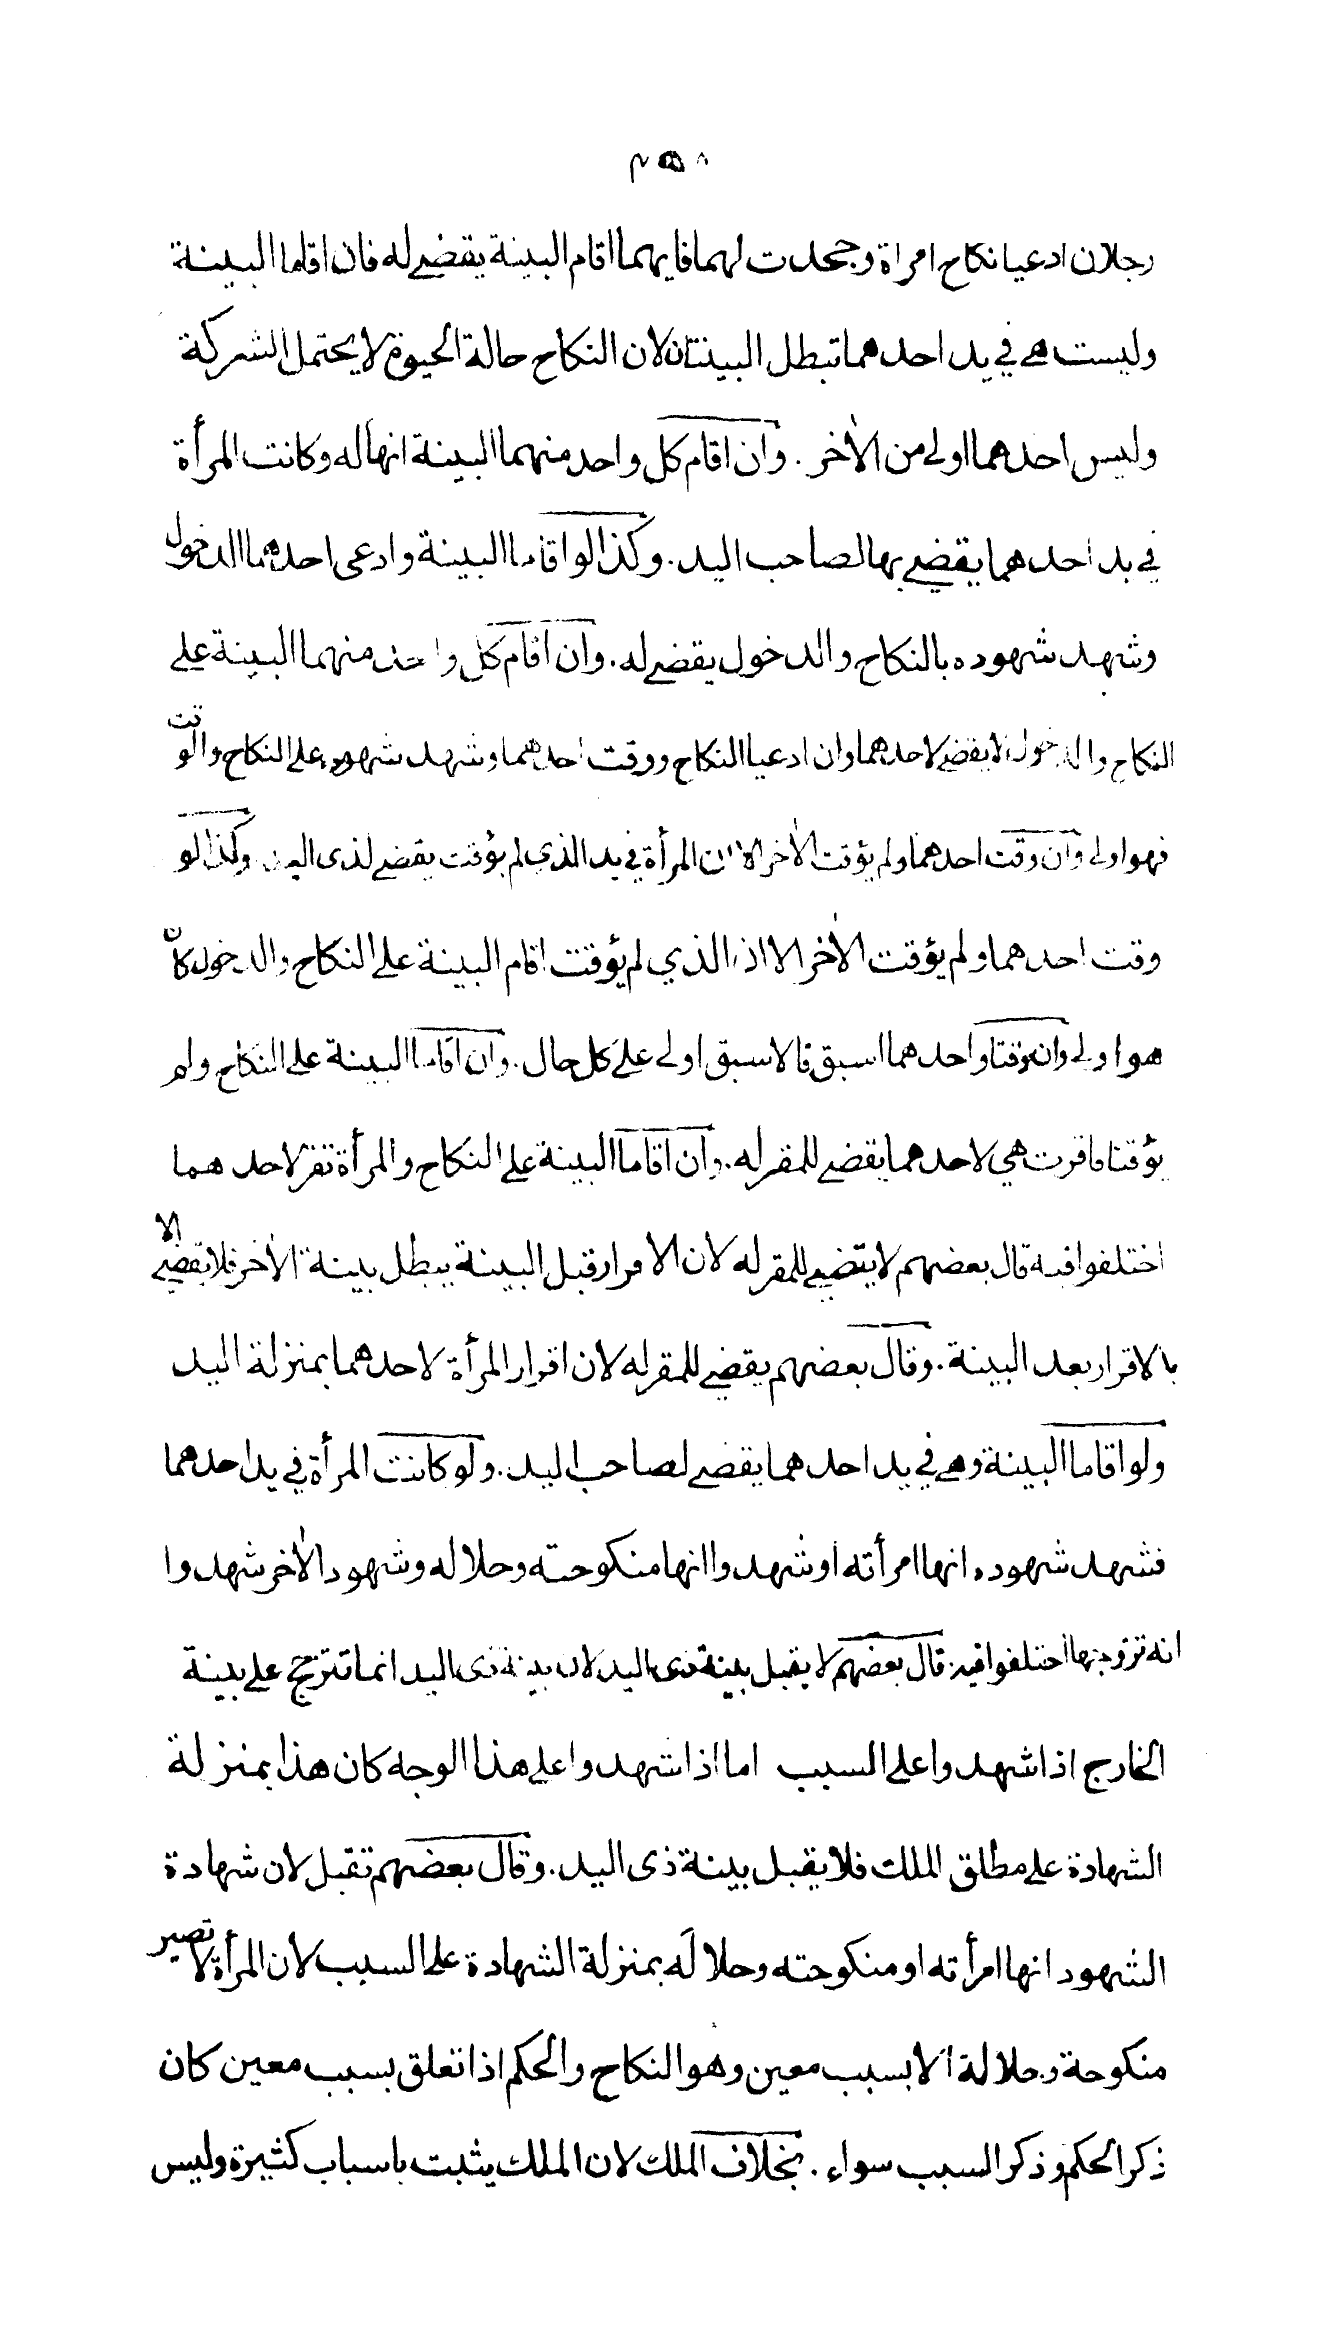 ٢٥٨
رجلان ادعيا نكاح امرأة وجحدت لهما فايهما اقام البينة يقضى له فان اقاما البينة
وليست هى في يد احدهما تبطل البينتان لان النكاح حالة الحيوة لا يحتمل الشركة
وليس احدهما اولى من الاخر . وان اقام كل واحد منهما البينة انها له وكانت المرأة
في يد احدهما يقضى بها لصاحب اليد . وكذا لو اقاما البينة وادعى احدهما الدخول
وشهد شهوده بالنكاح والدخول يقضى له . وان اقام كل واحد منهما البينة على
النكاح والدخول لا يقضى لاحدهما وان ادعيا النكاح ووقت احدهما وشهد شهوده على النكاح والوقت
فهو اولى وان وقت احدهما ولم يؤقت الاخر الا ان المرأة في يد الذي لم يؤقت يقضى لذى اليد وكذا لو
وقت احدهما ولم يؤقت الاخر الا اذا الذي لم يؤقت اقام البينة على النكاح والدخول كان
هو اولى وان وقتا واحدهما اسبق فالاسبق اولى على كل حال . وان اقاما البينة على النكاح ولم
يؤقتا فاقرت هي لاحدهما يقضى للمقر له . وان اقاما البينة على النكاح والمرأة تقر لاحدهما
اختلفوا فيه قال بعضهم لا يقضى للمقر له لان الاقرار قبل البينة يبطل بينة الاخر فلا يقضى الا
بالاقرار بعد البينة . وقال بعضهم يقضى للمقر له لان اقرار المرأة لاحدهما بمنزلة اليد
ولو اقاما البينة وهى في يد احدهما يقضى لصاحب اليد . ولو كانت المرأة في يد احدهما
فشهد شهوده انها امرأته او شهدوا انها منكوحته وحلاله وشهود الاخر شهدوا
انه تزوجها اختلفوا فيه قال بعضهم لا يقبل بينة ذى اليد لان بينة ذى اليد انما تترجح على بينة
الخارج اذا شهدوا على السبب اما اذا شهدوا على هذا الوجه كان هذا بمنزلة
الشهادة على مطلق الملك فلا يقبل بينة ذى اليد . وقال بعضهم تقبل لان شهادة
الشهود انها امرأته او منكوحته وحلاله بمنزلة الشهادة على السبب لان المرأة لا تصير
منكوحة وحلالة الا بسبب معين وهو النكاح والحكم اذا تعلق بسبب معين كان
ذكر الحكم وذكر السبب سواء . بخلاف الملك لان الملك يثبت باسباب كثيرة وليس